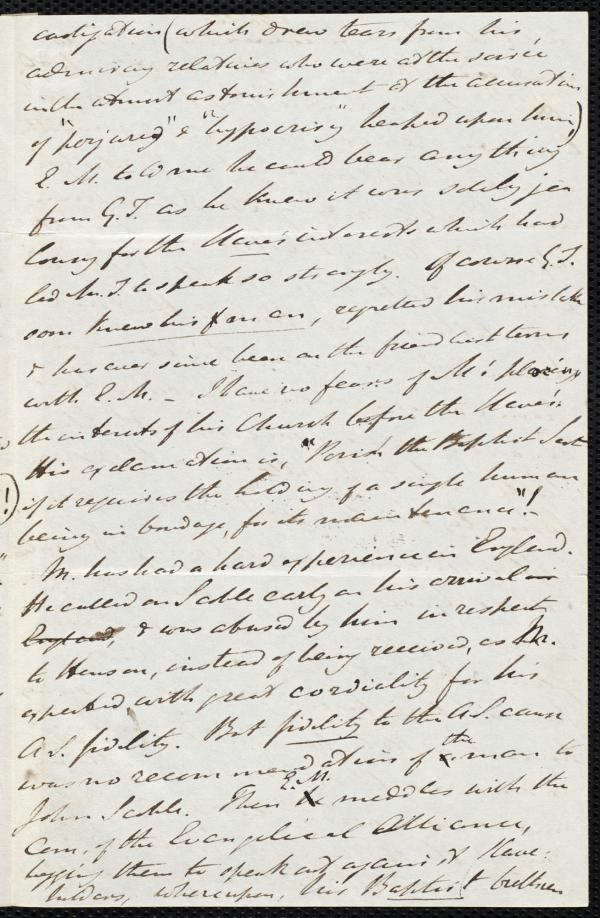 castigation (which drew tears from his
admiring relatives who were at the soirée
in the utmost astonishment at the accusation
of "perjured" & "hypocrisy" heaped upon him)
E. M. told me he could bear any thing
from G. T. as he knew it was solely jea
lousy for the Slave's interests which had
led Mr. T. to speak so strongly. Of course G. T.
soon knew his man, regretted his mistake
& has ever since been on the friendliest terms
with E. M. – I have no fears of M's placing
the interests of his Church before the Slave's
His exclamation is, "Perish the Baptist Sect
if it requires the holding of a single human
being in bondage, for its maintenance"!
M. has had a hard experience in England.
He called on Soble early on his arrival in
England, & was abused by him in respect
to Henson, instead of being received, as Mr.
expected, with great cordiality for his
A. S. fidelity. But fidelity to the A. S. cause
was no recommendation of the man to
John Soble. Then E. M. meddles with the
Com. of the Evangelical Alliance,
begging them to speak out against Slave-
holders, whereupon, his Baptist brethren